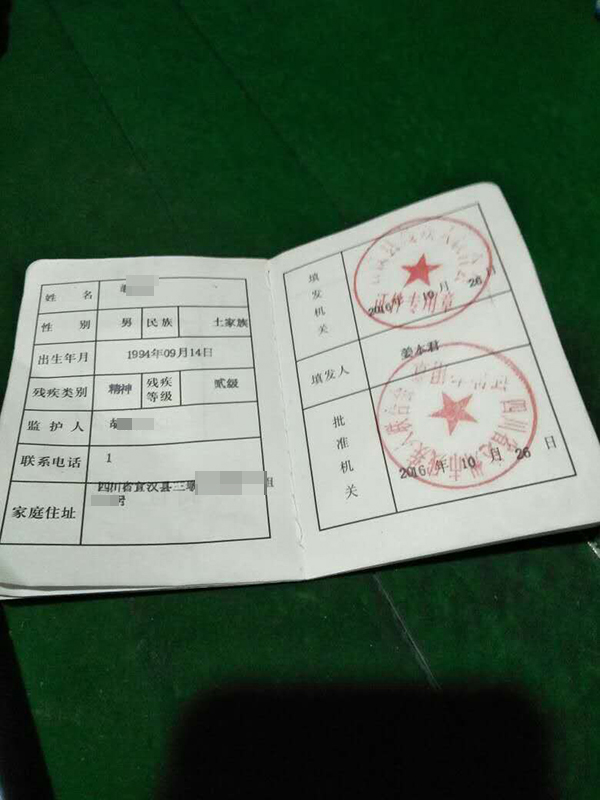 姓 名
性 别 男 民族 土家族
出生年月 1994年09月14日
残疾类别 精神 残疾等级 贰级
监 护 人 胡
联系电话 1
家庭住址 四川省宣汉县三
组
号
填发机关 2016 年 10 月 26 日
证件专用章
填发人 姜本君
批准机关 2016 年 10 月 26 日
四川省达州市残疾人联合会